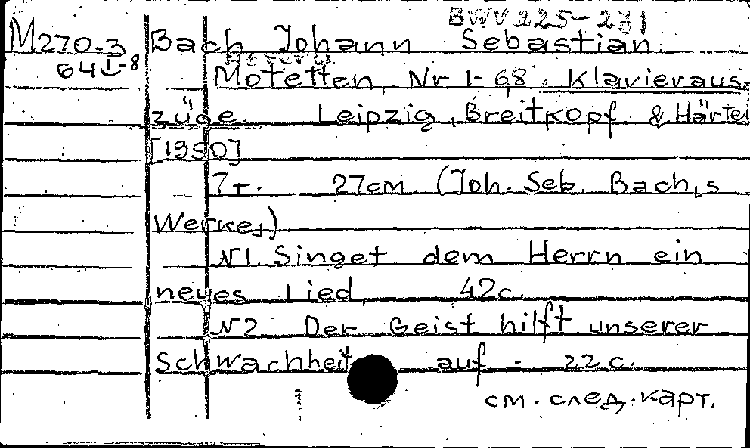 BWV 225-231
M270-3 Bach Johann Sebastian
64 I-8
Motetten, Nr 1-6,8. Klavieraus-
züge. Leipzig, Breitkopf & Härtel
[1950]
7т. 27cm. (Joh. Seb. Bach,s
Werke,)
N1 Singet dem Herrn ein
neues Lied 42c.
N2 Der Geist hilft unserer
Schwachheit auf - 22c.
см. след. карт.